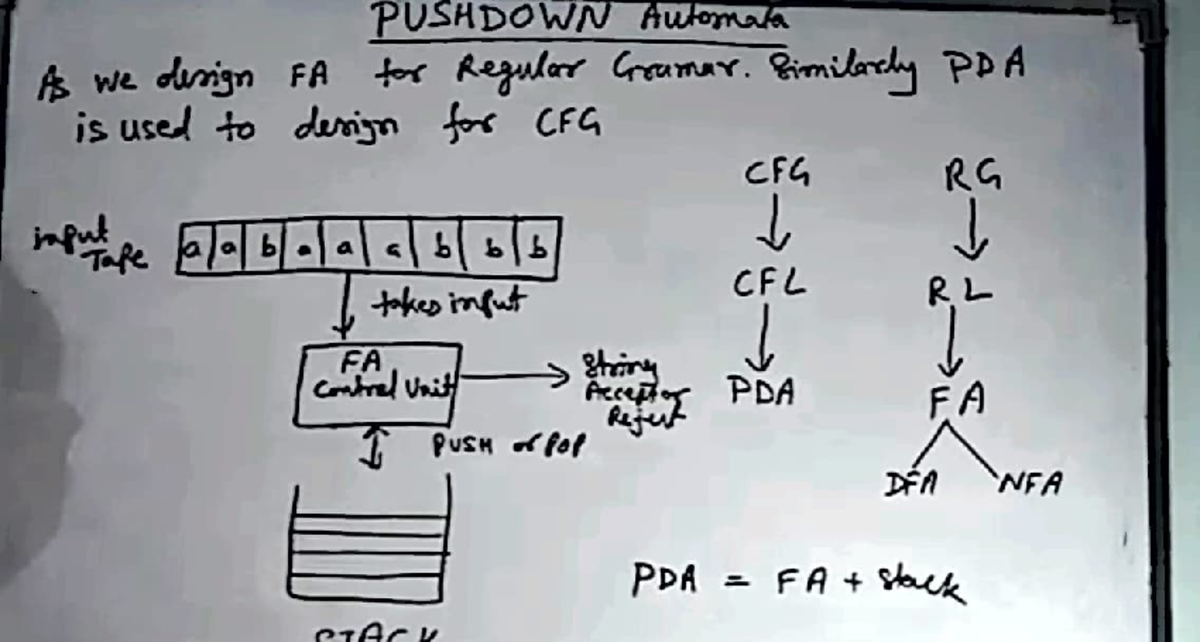 PUSHDOWN Automata
As we design FA for Regular Gramar. Similarly PDA
is used to design for CFG
input
Tape
a a b a a a b b b
takes input
FA
Control Unit
String
Accept or
Reject
PUSH or POP
STACK
CFG
CFL
PDA
RG
RL
FA
DFA NFA
PDA = FA + Stack